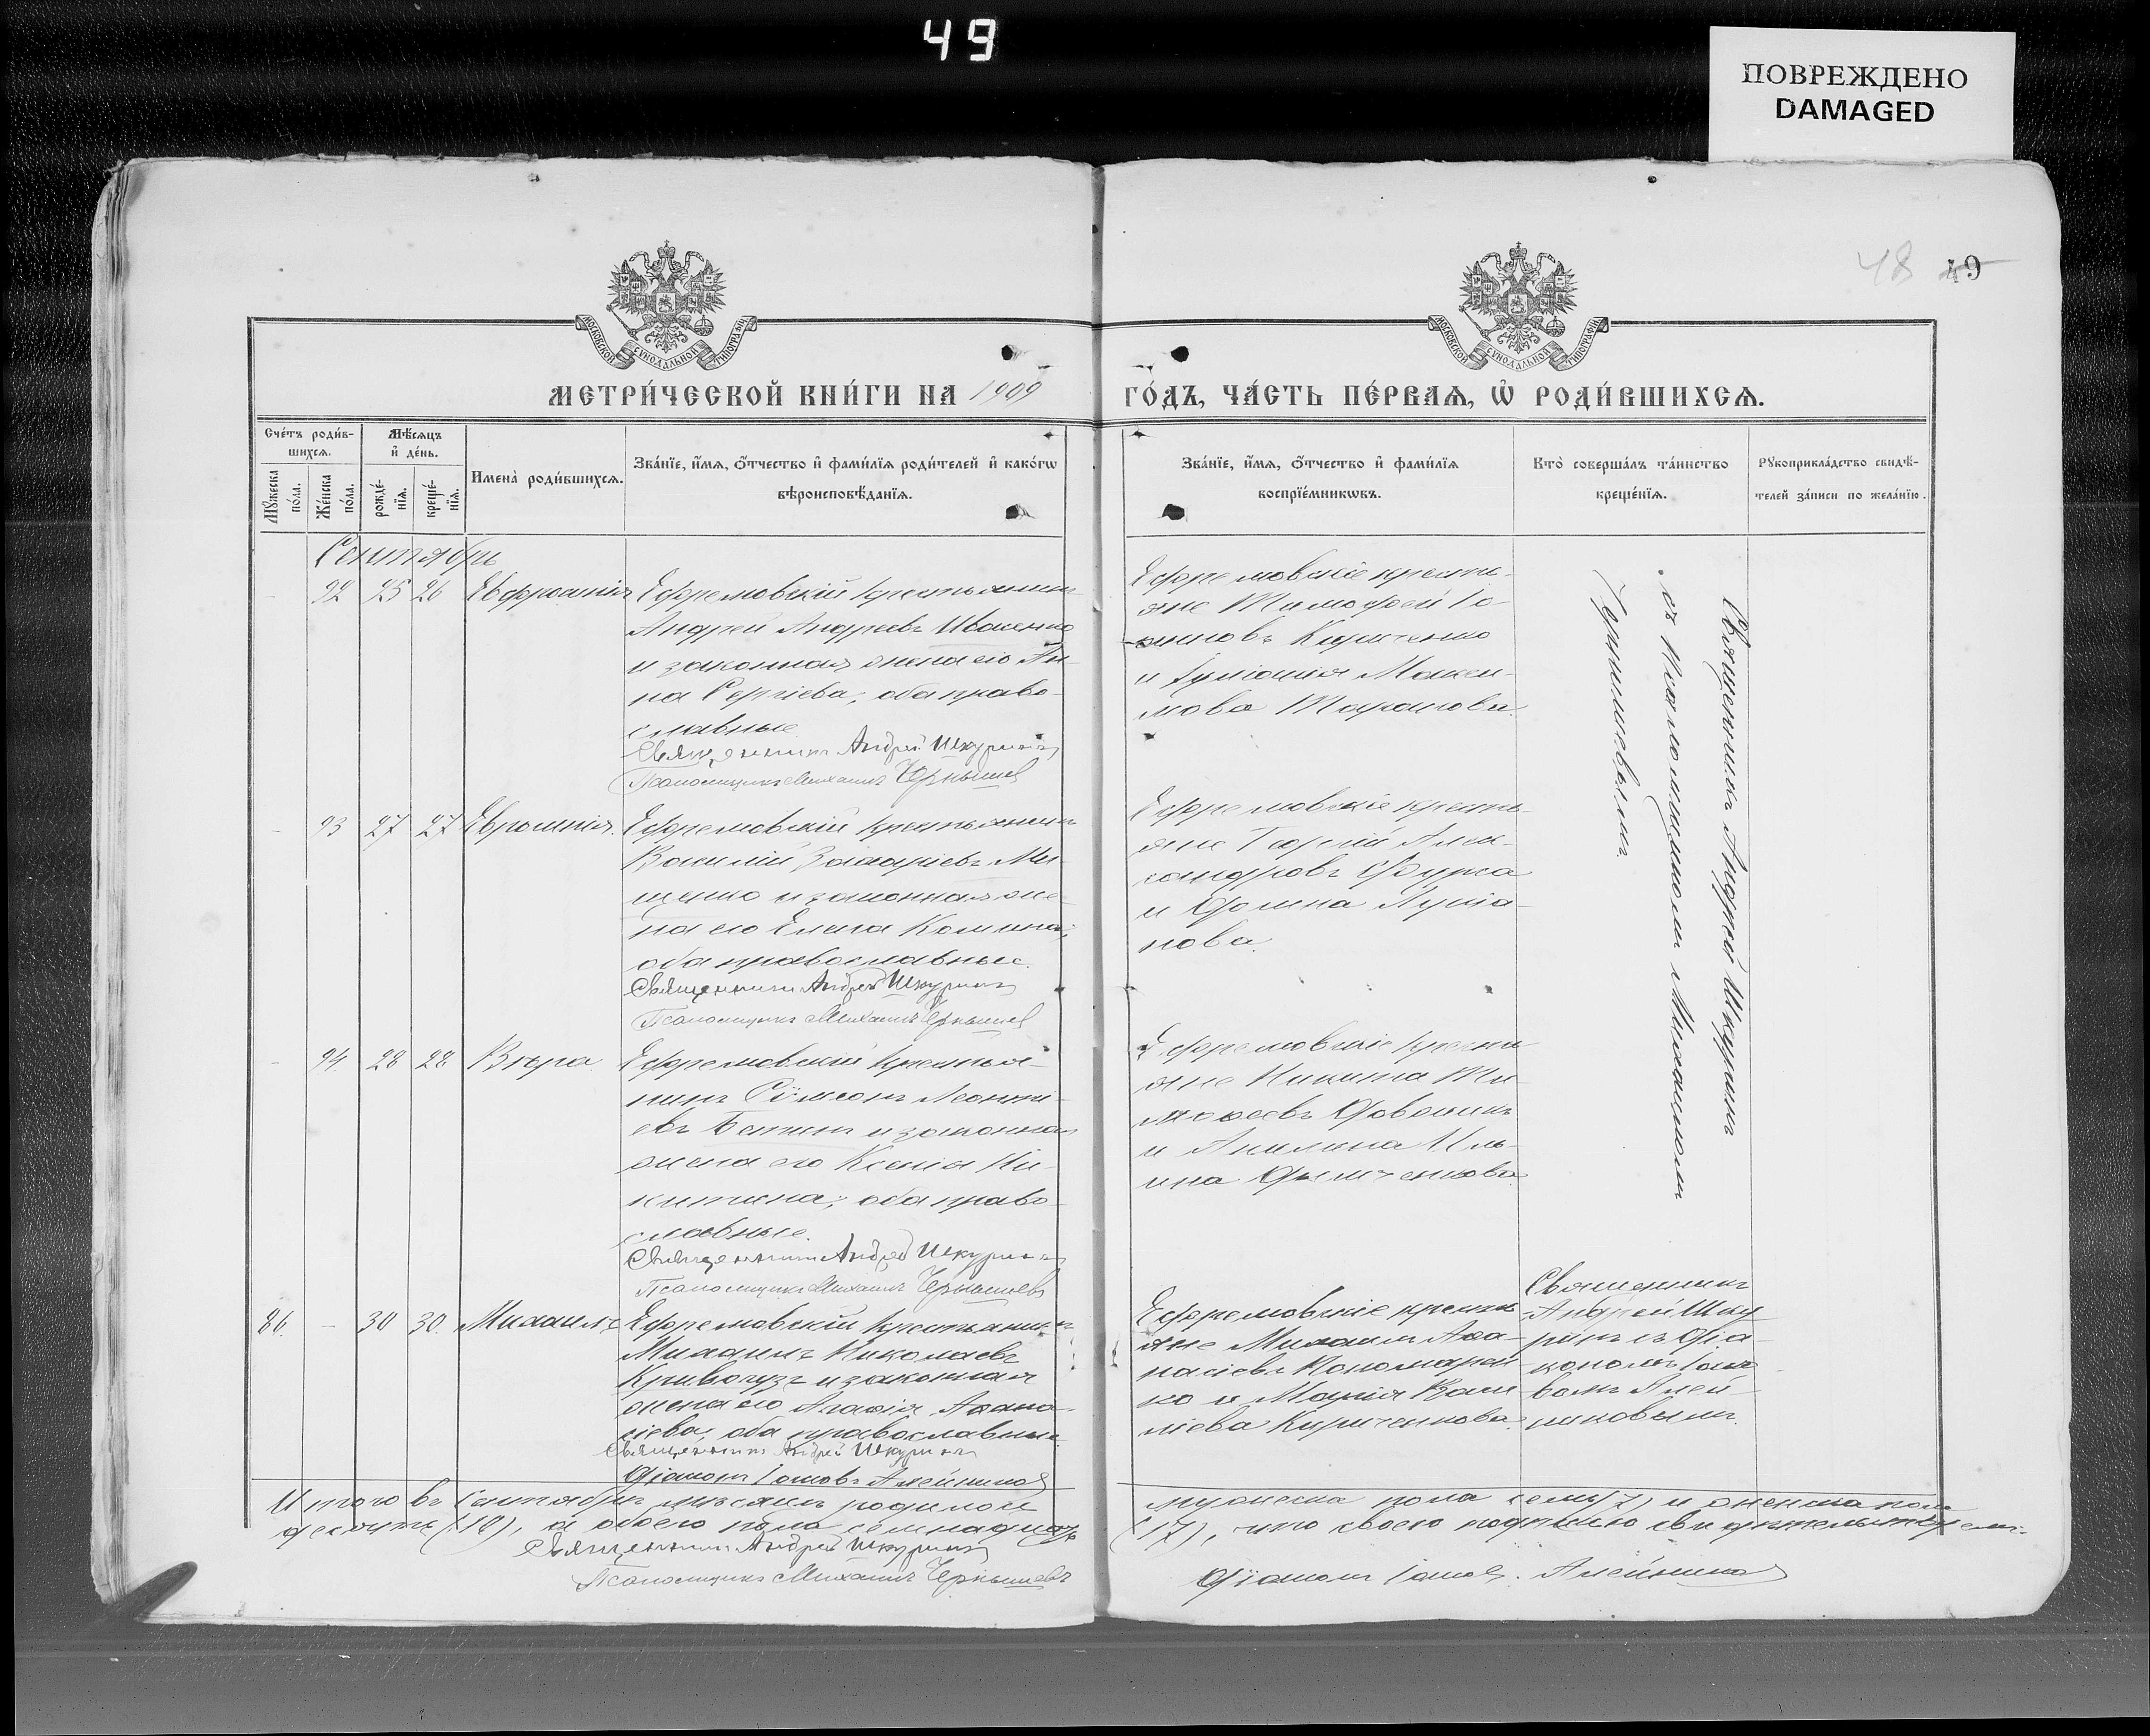 49
ПОВРЕЖДЕНО
DAMAGED
48 49
МОСКОВСКОЙ СѴНОДАЛЬНОЙ ТИПОГРАФІИ
МОСКОВСКОЙ СѴНОДАЛЬНОЙ ТИПОГРАФІИ
МЕТРИ́ЧЕСКОЙ КНИ́ГИ НА 1909 ГО́ДЪ, ЧА́СТЬ ПЕ́РВАѦ, Ѡ҆ РОДИ́ВШИХСѦ.
Сче́тъ роди́в-
шихсѧ.
Мꙋ́жеска по́ла.
Же́нска по́ла.
Мѣ́сѧцъ
и҆ де́нь.
рожде́-
нїѧ.
креще́-
нїѧ.
Имена̀ роди́вшихсѧ.
Зва́нїе, и҆́мѧ, ѻ҆́тчество и҆ фами́лїѧ роди́телей и҆ како́гѡ
вѣроисповѣ́данїѧ.
Зва́нїе, и҆́мѧ, ѻ҆́тчество и҆ фами́лїѧ
воспрїе́мникѡвъ.
Кто̀ соверша́лъ та́инство
креще́нїѧ.
Рꙋкоприкла́дство свидѣ́-
телей за́писи по жела́нїю.
Сентябрь
- 92 25 26 Евфросинія
Ефремовскій крестьянинъ
Андрей Андреевъ Иваненко
и законная жена его Ан-
на Сергіева, оба право-
славные.
Священникъ Андрей Шкуринъ
Псаломщикъ Михаилъ Чернышев
Ефремовскіе кресть-
яне Тимофей Іо-
анновъ Кириченко
и Максі-
мова
- 93 27 27 Евросинія.
Ефремовскій крестьянинъ
Василій Захаріевъ Ми-
щенко и законная же-
на его Елена
оба православные.
Священникъ Андрей Шкуринъ
Псаломщикъ Михаилъ Чернышев
Ефремовскіе кресть-
яне Георгій Алек-
сандровъ Фурса
и Лукіа-
нова.
- 94 28 28 Вѣра
Ефремовскій крестья-
нинъ Сѵмеонъ Леонті-
евъ и законная
жена его Ксенія Ни-
китина; оба право-
славные.
Священникъ Андрей Шкуринъ
Псаломщикъ Михаилъ Чернышевъ
Ефремовскіе кресть-
яне Никита Ти-
моѳеевъ
и Акилина Иль-
ина
Священникъ Андрей Шкуринъ
съ псаломщикомъ Михаиломъ
Чернышевымъ.
86. - 30 30. Михаилъ
Ефремовскій крестьянинъ
Михаилъ Николаевъ
Кривогузъ и законная
жена его Агаѳія Аѳана-
сіева, оба православные.
Священникъ Андрей Шкуринъ
Діаконъ Іаковъ Алейников
Ефремовскіе кресть-
яне Михаилъ Аѳа-
насіевъ Пономарен-
ко и Марія Васи-
ліева Кириченкова.
Священникъ
Андрей Шку-
ринъ съ Діа-
кономъ Іако-
вомъ Алей-
никовымъ.
Итого въ Сентябрѣ мѣсяцѣ родилось мужеска пола семь (7) и женска пола
десять (10), а обоего пола семнадцать (17), что своею подписью свидѣтельствуемъ:
Священникъ Андрей Шкуринъ
Псаломщикъ Михаилъ Чернышевъ
Діаконъ Іаков. Алейников